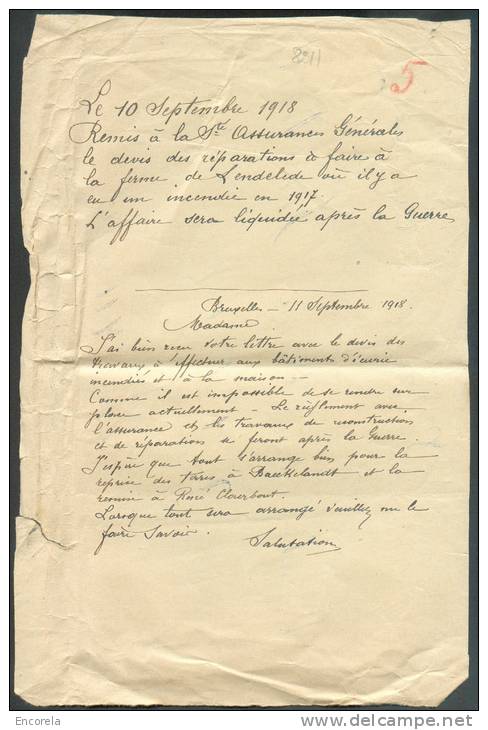 8211
5
Le 10 Septembre 1918
Remis à la Sté Assurances Générales
le devis des réparations à faire à
la ferme de Lendelede où il y a
eu un incendie en 1917.
L'affaire sera liquidée après la Guerre
Bruxelles - 11 Septembre 1918.
Madame.
J'ai bien reçu votre lettre avec le devis des
travaux à effectuer aux bâtiments d'écurie
incendiés et à la maison -
Comme il est impossible de se rendre sur
place actuellement - Le règlement avec
l'assurance et les travaux de reconstruction
et de réparations se feront après la Guerre.
J'espère que tout s'arrange bien pour la
reprise des terres à Baekelandt et la
remise à René Claerbout.
Lorsque tout sera arrangé veuillez me le
faire savoir.
Salutation
Encorela
http://www.delcampe.net